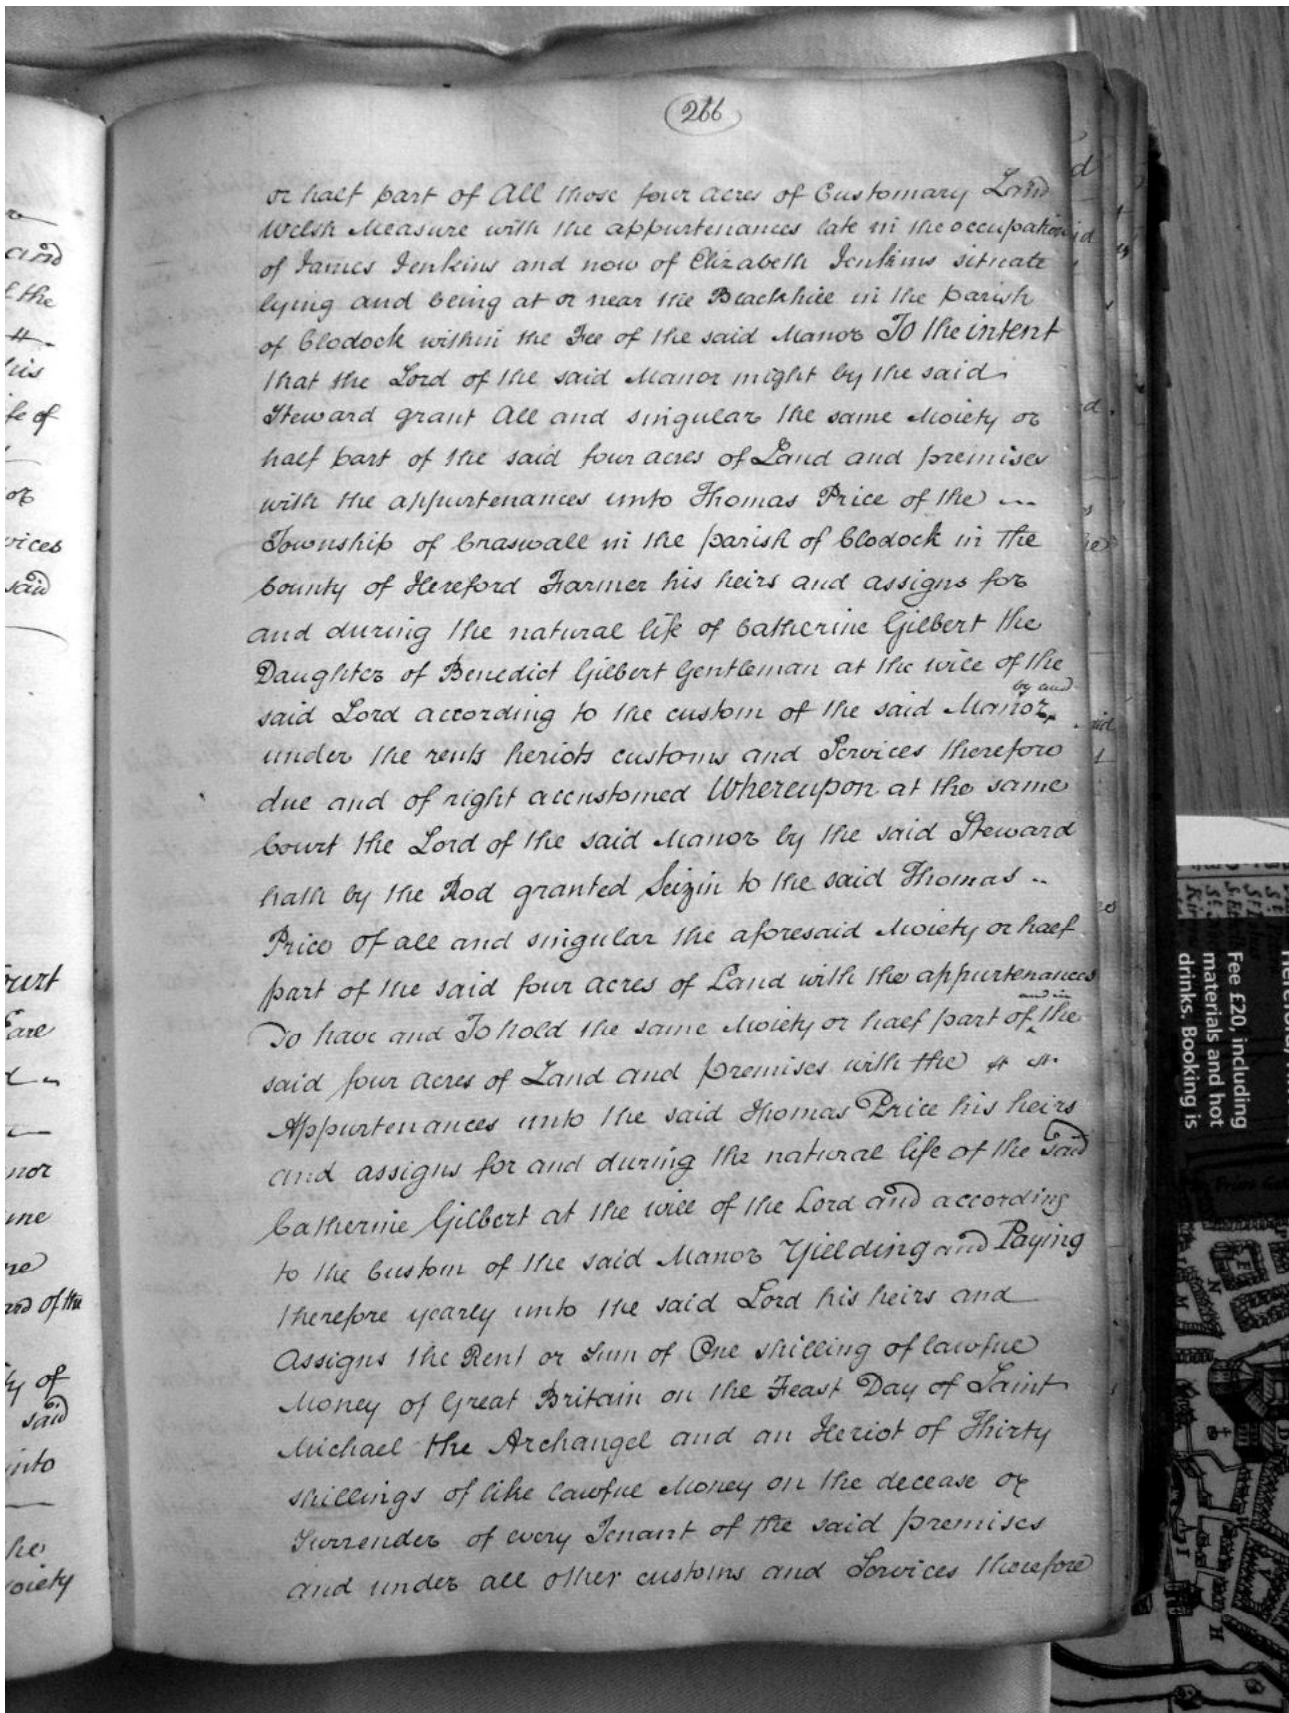 266
or half part of All those four acres of Customary Land
Welsh Measure with the appurtenances late in the occupation
of James Jenkins and now of Elizabeth Jenkins situate
lying and being at or near the Blackhill in the parish
of Clodock within the Fee of the said Manor To the intent
that the Lord of the said Manor might by the said
Steward grant All and singular the same Moiety or
half part of the said four acres of Land and premises
with the appurtenances unto Thomas Price of the
Township of Craswall in the parish of Clodock in the
County of Hereford Farmer his heirs and assigns for
and during the natural life of Catherine Gilbert the
Daughter of Benedict Gilbert Gentleman at the will of the
said Lord according to the custom of the said Manor by and
under the rents heriots customs and Services therefore
due and of right accustomed Whereupon at the same
Court the Lord of the said Manor by the said Steward
hath by the Rod granted Seizin to the said Thomas
Price of all and singular the aforesaid Moiety or half
part of the said four acres of Land with the appurtenances
To have and To hold the same Moiety or half part of and in the
said four acres of Land and premises with the
Appurtenances unto the said Thomas Price his heirs
and assigns for and during the natural life of the said
Catherine Gilbert at the will of the Lord and according
to the Custom of the said Manor Yielding and Paying
therefore yearly unto the said Lord his heirs and
Assigns the Rent or Sum of One shilling of lawful
Money of Great Britain on the Feast Day of Saint
Michael the Archangel and an Heriot of Thirty
shillings of like lawful Money on the decease or
Surrender of every Tenant of the said premises
and under all other customs and Services therefore
and
the
his
life of
or
vices
said
Court
nor
ard of the
ty of
said
into
he
oiety
Fee £20, including
materials and hot
drinks. Booking is